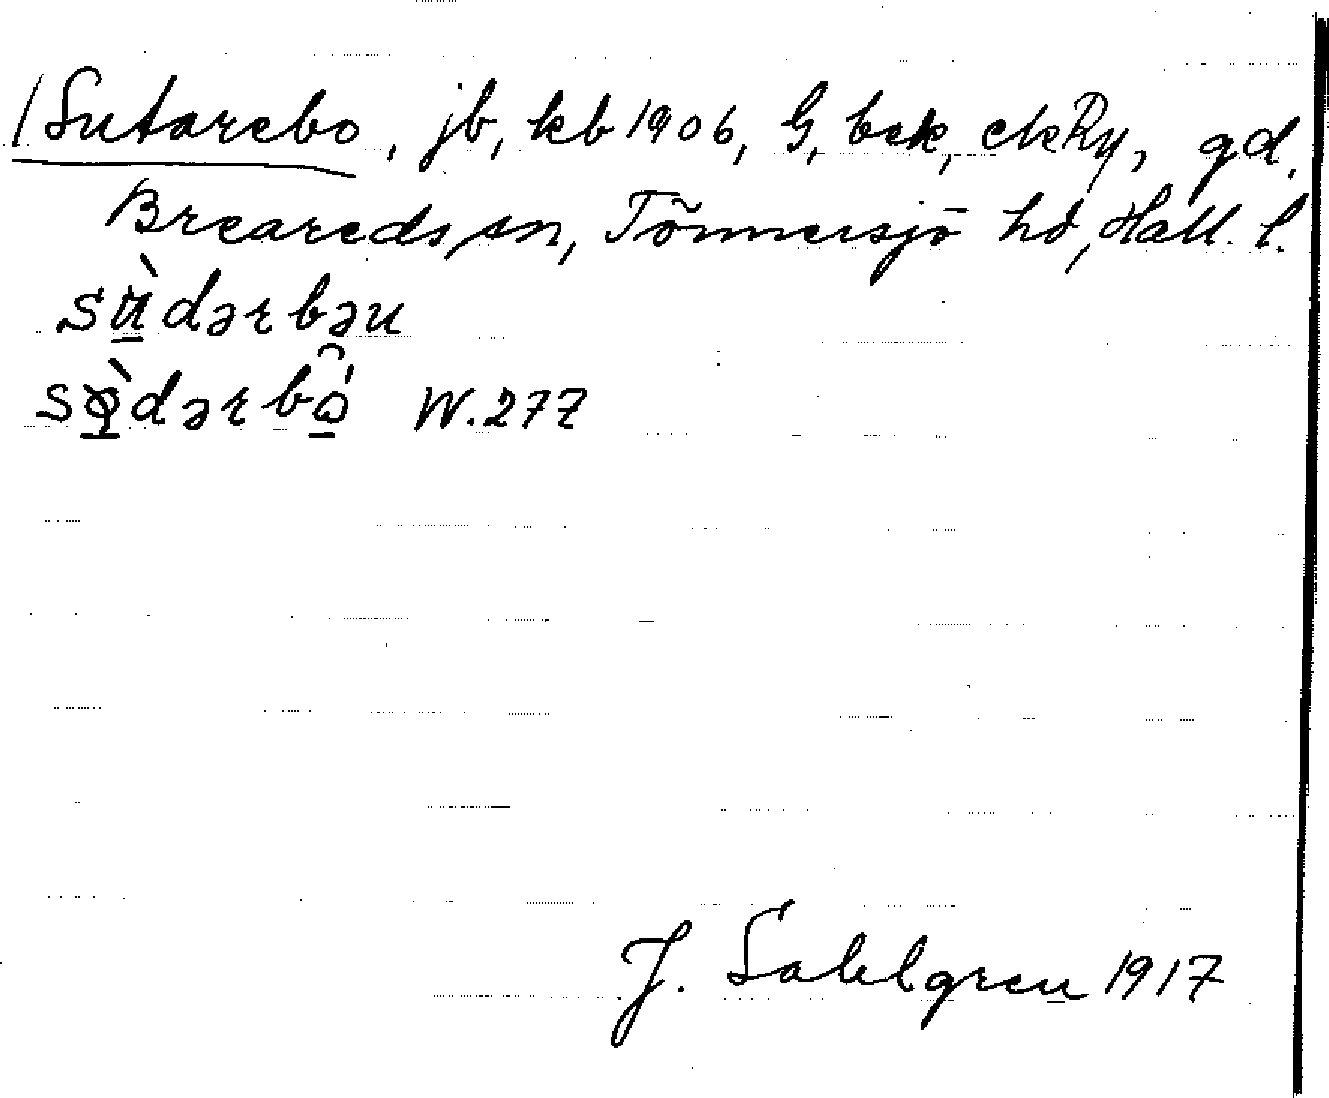 /Sutarebo, jb, kb 1906, G, bek, ekRy, gd.
Breareds sn, Tönnersjö hd, Hall. l.
sù̱dərbəu
sø̱̀dərbô̱ W. 277
J. Sahlgren 1917